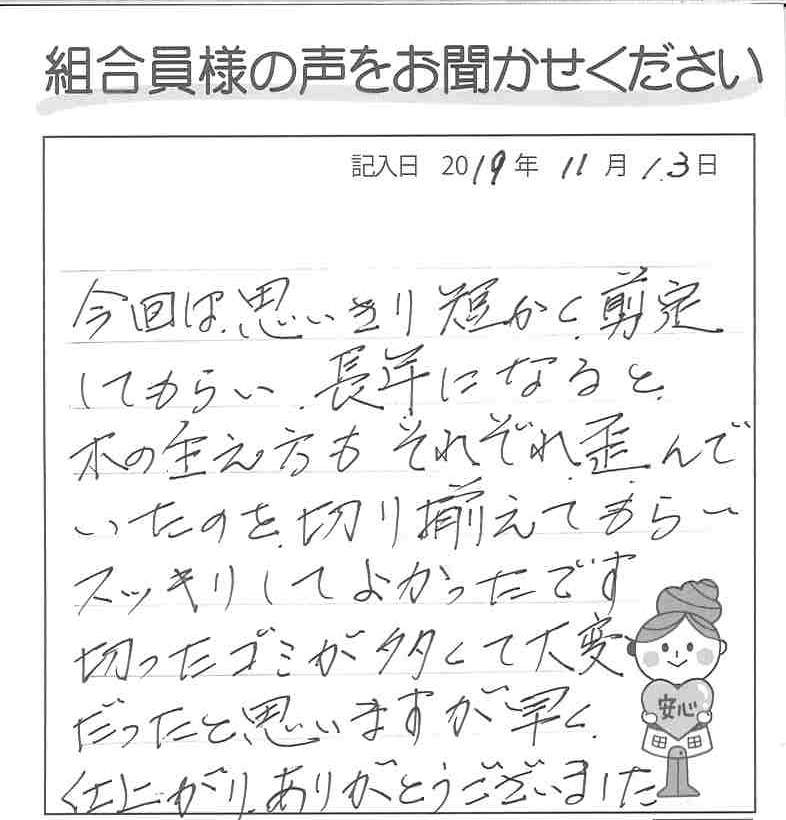 組合員様の声をお聞かせください
記入日 2019年 11月 13日
今回は思いきり短かく剪定
してもらい、長年になると
木の生え方もそれぞれ歪んで
いたのを切り揃えてもらい
スッキリしてよかったです
切ったゴミが多くて大変
だったと思いますが早く
仕上がりありがとうございました
安心